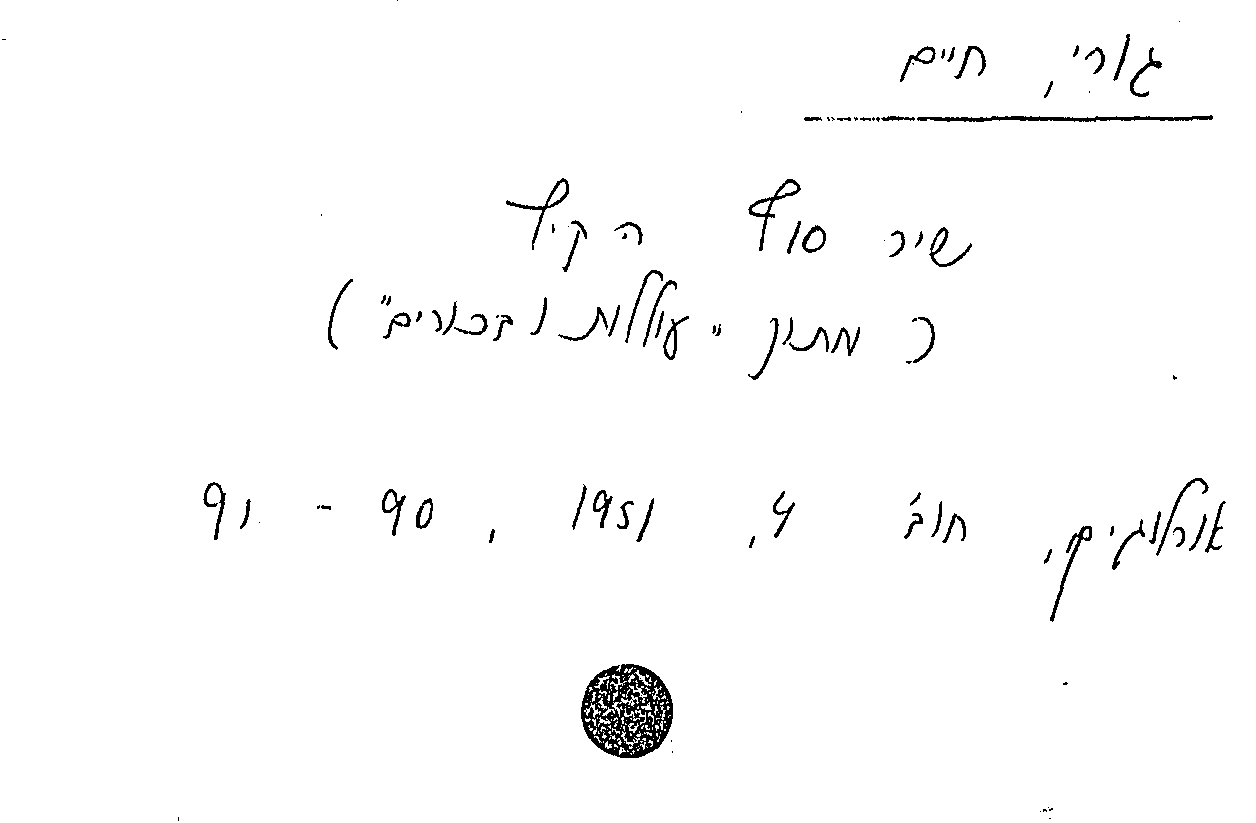 גורי, חיים
שיר סוף הקיץ
(מתוך "עוללות ובכורים")
אורלוגין, חוב' 4, 1951, 90 - 91